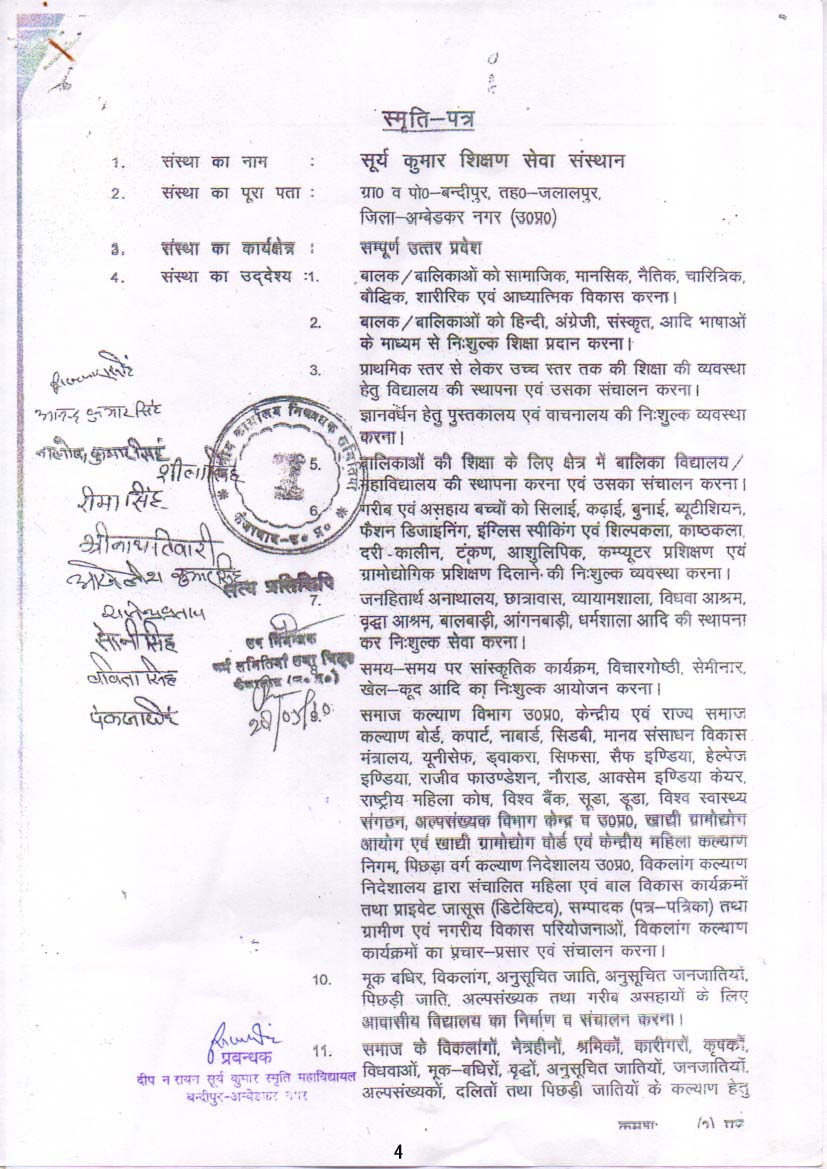 स्मृति–पत्र
1. संस्था का नाम : सूर्य कुमार शिक्षण सेवा संस्थान
2. संस्था का पूरा पता : ग्रा0 व पो0–बन्दीपुर, तह0–जलालपुर,
जिला–अम्बेडकर नगर (उ0प्र0)
3. संस्था का कार्यक्षेत्र : सम्पूर्ण उत्तर प्रदेश
4. संस्था का उद्देश्य :1. बालक/बालिकाओं को सामाजिक, मानसिक, नैतिक, चारित्रिक,
बौद्धिक, शारीरिक एवं आध्यात्मिक विकास करना।
2. बालक/बालिकाओं को हिन्दी, अंग्रेजी, संस्कृत, आदि भाषाओं
के माध्यम से निःशुल्क शिक्षा प्रदान करना।
3. प्राथमिक स्तर से लेकर उच्च स्तर तक की शिक्षा की व्यवस्था
हेतु विद्यालय की स्थापना एवं उसका संचालन करना।
ज्ञानवर्धन हेतु पुस्तकालय एवं वाचनालय की निःशुल्क व्यवस्था
करना।
5. बालिकाओं की शिक्षा के लिए क्षेत्र में बालिका विद्यालय/
महाविद्यालय की स्थापना करना एवं उसका संचालन करना।
6. गरीब एवं असहाय बच्चों को सिलाई, कढ़ाई, बुनाई, ब्यूटीशियन,
फैशन डिजाइनिंग, इंग्लिस स्पीकिंग एवं शिल्पकला, काष्ठकला,
दरी कालीन, टंकण, आशुलिपिक, कम्प्यूटर प्रशिक्षण एवं
ग्रामोद्योगिक प्रशिक्षण दिलाने की निःशुल्क व्यवस्था करना।
7. जनहितार्थ अनाथालय, छात्रावास, व्यायामशाला, विधवा आश्रम,
वृद्धा आश्रम, बालबाड़ी, आंगनबाड़ी, धर्मशाला आदि की स्थापना
कर निःशुल्क सेवा करना।
समय–समय पर सांस्कृतिक कार्यक्रम, विचारगोष्ठी, सेमीनार,
खेल–कूद आदि का निःशुल्क आयोजन करना।
समाज कल्याण विभाग उ0प्र0, केन्द्रीय एवं राज्य समाज
कल्याण बोर्ड, कपार्ट, नाबार्ड, सिडबी, मानव संसाधन विकास
मंत्रालय, यूनीसेफ, ड्वाकरा, सिफसा, सैफ इण्डिया, हेल्पेज
इण्डिया, राजीव फाउण्डेशन, नौराड, आक्सेम इण्डिया केयर,
राष्ट्रीय महिला कोष, विश्व बैंक, सूडा, डूडा, विश्व स्वास्थ्य
संगठन, अल्पसंख्यक विभाग केन्द्र व उ0प्र0, खाद्यी ग्रामोद्योग
आयोग एवं खाद्यी ग्रामोद्योग वोर्ड एवं केन्द्रीय महिला कल्याण
निगम, पिछड़ा वर्ग कल्याण निदेशालय उ0प्र0, विकलांग कल्याण
निदेशालय द्वारा संचालित महिला एवं बाल विकास कार्यक्रमों
तथा प्राइवेट जासूस (डिटेक्टिव), सम्पादक (पत्र–पत्रिका) तथा
ग्रामीण एवं नगरीय विकास परियोजनाओं, विकलांग कल्याण
कार्यक्रमों का प्रचार–प्रसार एवं संचालन करना।
10. मूक बधिर, विकलांग, अनुसूचित जाति, अनुसूचित जनजातियों,
पिछड़ी जाति, अल्पसंख्यक तथा गरीब असहायों के लिए
आवासीय विद्यालय का निर्माण व संचालन करना।
11. समाज के विकलांगों, नेत्रहीनों, श्रमिकों, कारीगरों, कृषकों,
विधवाओं, मूक–बधिरों, वृद्धों, अनुसूचित जातियों, जनजातियों,
अल्पसंख्यकों, दलितों तथा पिछड़ी जातियों के कल्याण हेतु
आनन्द कुमार सिंह
शीला सिंह
रीमा सिंह
श्रीनाथ तिवारी
अखिलेश कुमार सिंह
सत्य प्रतिलिपि
सोनी सिंह
उप निबन्धक
फर्म समितियां तथा चिट्स
प्रबन्धक
दीप नरायन सूर्य कुमार स्मृति महाविद्यालय
बन्दीपुर-अम्बेडकर नगर
4